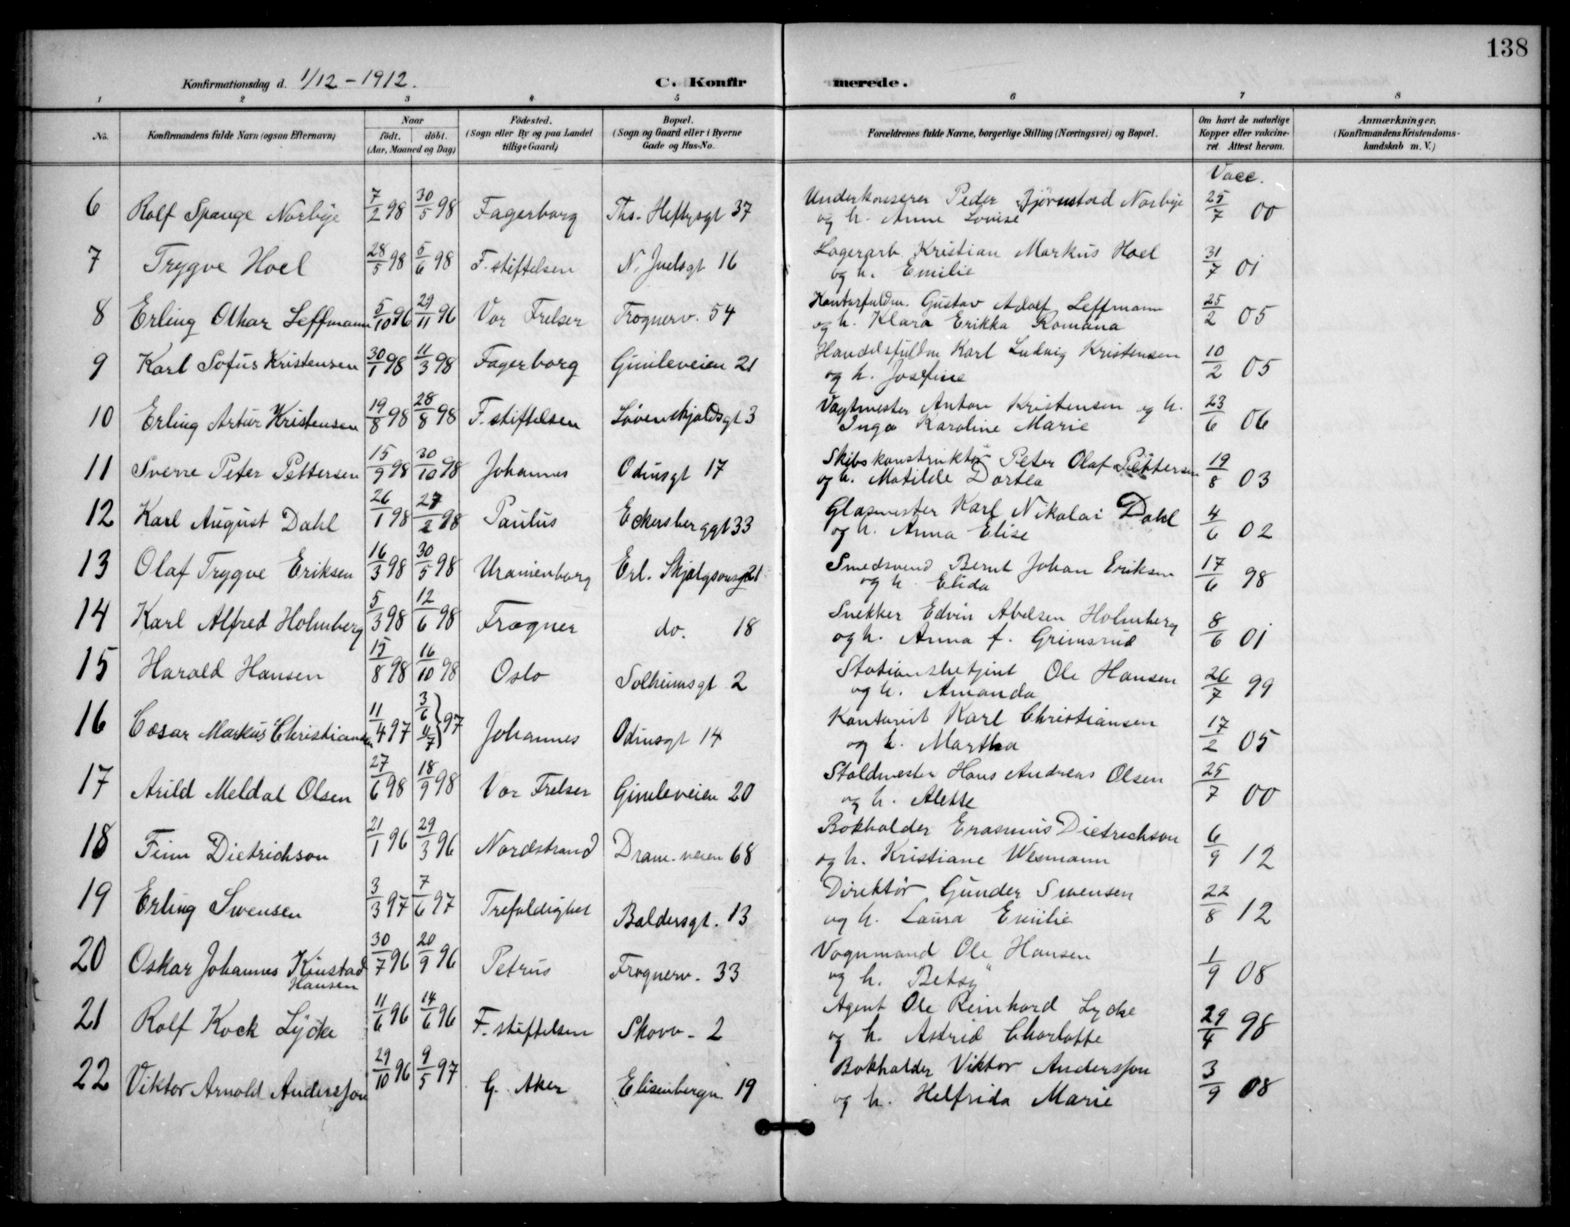 138
Konfirmationsdag d. 1/12 - 1912. C. Konfirmerede.
1 2 3 4 5 6 7 8
No. Konfirmandens fulde Navn (ogsaa Efternavn) Naar født. døbt. (Aar, Maaned og Dag) Fødested. (Sogn eller By og paa Landet tillige Gaard) Bopæl. (Sogn og Gaard eller i Byerne Gade og Hus-No.) Forældrenes fulde Navne, borgerlige Stilling (Næringsvei) og Bopæl. Om havt de naturlige Kopper eller vaccineret Attest herom. Anmærkninger. (Konfirmandens Kristendomskundskab m. V.)
Vacc.
6 Rolf Spange Norbye 7/2 98 30/5 98 Fagerborg Ths. Heftysgt 37 Underkonserer Peder Bjørnstad Norbye 25/7 00
og h. Anne Lovise
7 Trygve Hoel 28/5 98 5/6 98 F. stiftelsen N. Juelsgt 16 Lagerarb. Kristian Markus Hoel 31/7 01
og h. Emilie
8 Erling Othar Leffmann 5/10 96 29/11 96 Vor Frelser Frognerv. 54 Kontorfuldm. Gustav Adolf Leffmann 25/2 05
og h. Klara Erikka Romana
9 Karl Sofus Kristensen 30/1 98 11/3 98 Fagerborg Gimleveien 21 Handelsfuldm Karl Ludvig Kristensen 10/2 05
og h. Josefine
10 Erling Artur Kristensen 19/8 98 28/8 98 F. stiftelsen Løvenskjoldsgt 3 Vagtmester Anton Kristensen og h. 23/6 06
Inga Karoline Marie
11 Sverre Peter Pettersen 15/9 98 30/10 98 Johannes Odinsgt 17 Skibskonstruktør Peter Olaf Pettersen 19/8 03
og h. Matilde Dortea
12 Karl August Dahl 26/1 98 27/2 98 Paulus Eckersberggt 33 Glasmester Karl Nikolai Dahl 4/6 02
og h. Anna Elise
13 Olaf Trygve Eriksen 16/3 98 30/5 98 Uranienborg Erl. Skjalgsonsgt 21 Smedsvend Bernt Johan Eriksen 17/6 98
og h Elida
14 Karl Alfred Holmberg 5/3 98 12/6 98 Frogner do. 18 Snekker Edvin Abelsen Holmberg 8/6 01
og h. Anna f. Grimsrud
15 Harald Hansen 15/8 98 16/10 98 Oslo Solheimsgt 2 Stationsbetjent Ole Hansen 26/7 99
og h. Amanda
16 Cæsar Markus Christiansen 11/4 97 3/6 97 Johannes Odinsgt 14 Kontorist Karl Christiansen 17/2 05
og h. Martha
17 Arild Meldal Olsen 27/6 98 18/9 98 Vor Frelser Gimleveien 20 Staldmester Hans Andreas Olsen 25/7 00
og h. Alette
18 Finn Dietrichson 21/1 96 29/3 96 Nordstrand Dram. veien 68 Bokholder Erasmus Dietrichson 6/9 12
og h. Kristiane Wesmann
19 Erling Swensen 3/3 97 7/6 97 Trefoldighet Baldersgt. 13 Direktør Gunder Swensen 22/8 12
og h. Laura Emilie
20 Oskar Johannes Kinstad Hansen 30/7 96 20/9 96 Petrus Frognerv. 33 Vognmand Ole Hansen 1/9 08
og h. Betsy
21 Rolf Kock Lycke 11/6 96 14/6 96 F. stiftelsen Skovv. 2 Agent Ole Reinhard Lycke 29/4 98
og h. Astrid Charlotte
22 Viktor Arnold Andersson 29/10 96 9/5 97 G. Aker Elisenbergv. 19 Bokholder Viktor Andersson 3/9 08
og h. Helfrida Marie